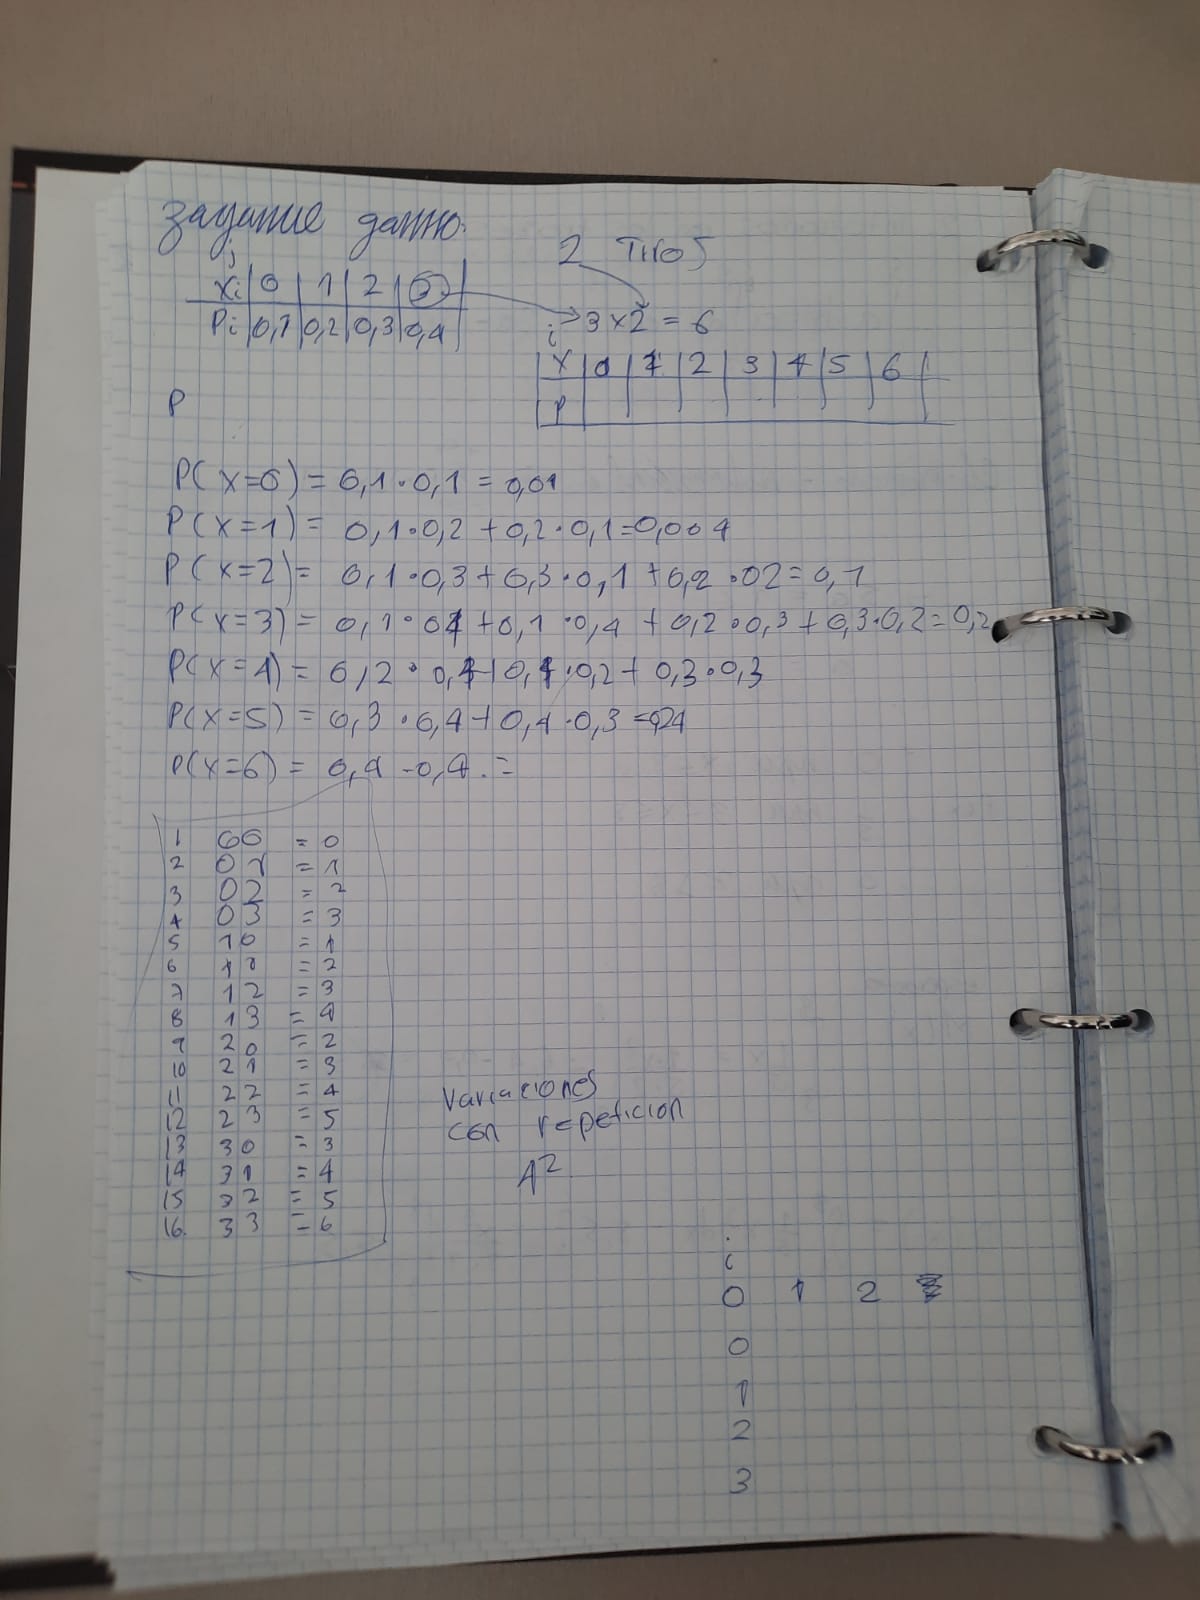 задание данно.
j
Xi 0 1 2 3
Pi 0,1 0,2 0,3 0,4
2 Tiros
i 3 x 2 = 6
X 0 1 2 3 4 5 6
P
P
P(X=0) = 0,1·0,1 = 0,01
P(X=1) = 0,1·0,2 + 0,2·0,1=0,004
P(X=2)= 0,1·0,3+0,3·0,1 +0,2·02=0,1
P(X=3)= 0,1·04 +0,1·0,4 + 0,2·0,3+0,3·0,2=0,2
P(X=4)= 0,2·0,4+0,4·0,2+ 0,3·0,3
P(X=5) = 0,3·0,4+0,4·0,3 =0,24
P(X=6) = 0,4·0,4.=
1 00 = 0
2 01 = 1
3 02 = 2
4 03 = 3
5 10 = 1
6 11 = 2
7 12 = 3
8 13 = 4
9 20 = 2
10 21 = 3
11 22 = 4
12 23 = 5
13 30 = 3
14 31 = 4
15 32 = 5
16. 33 = 6
Variaciones
con repeticion
4²
i
0 1 2
0
1
2
3